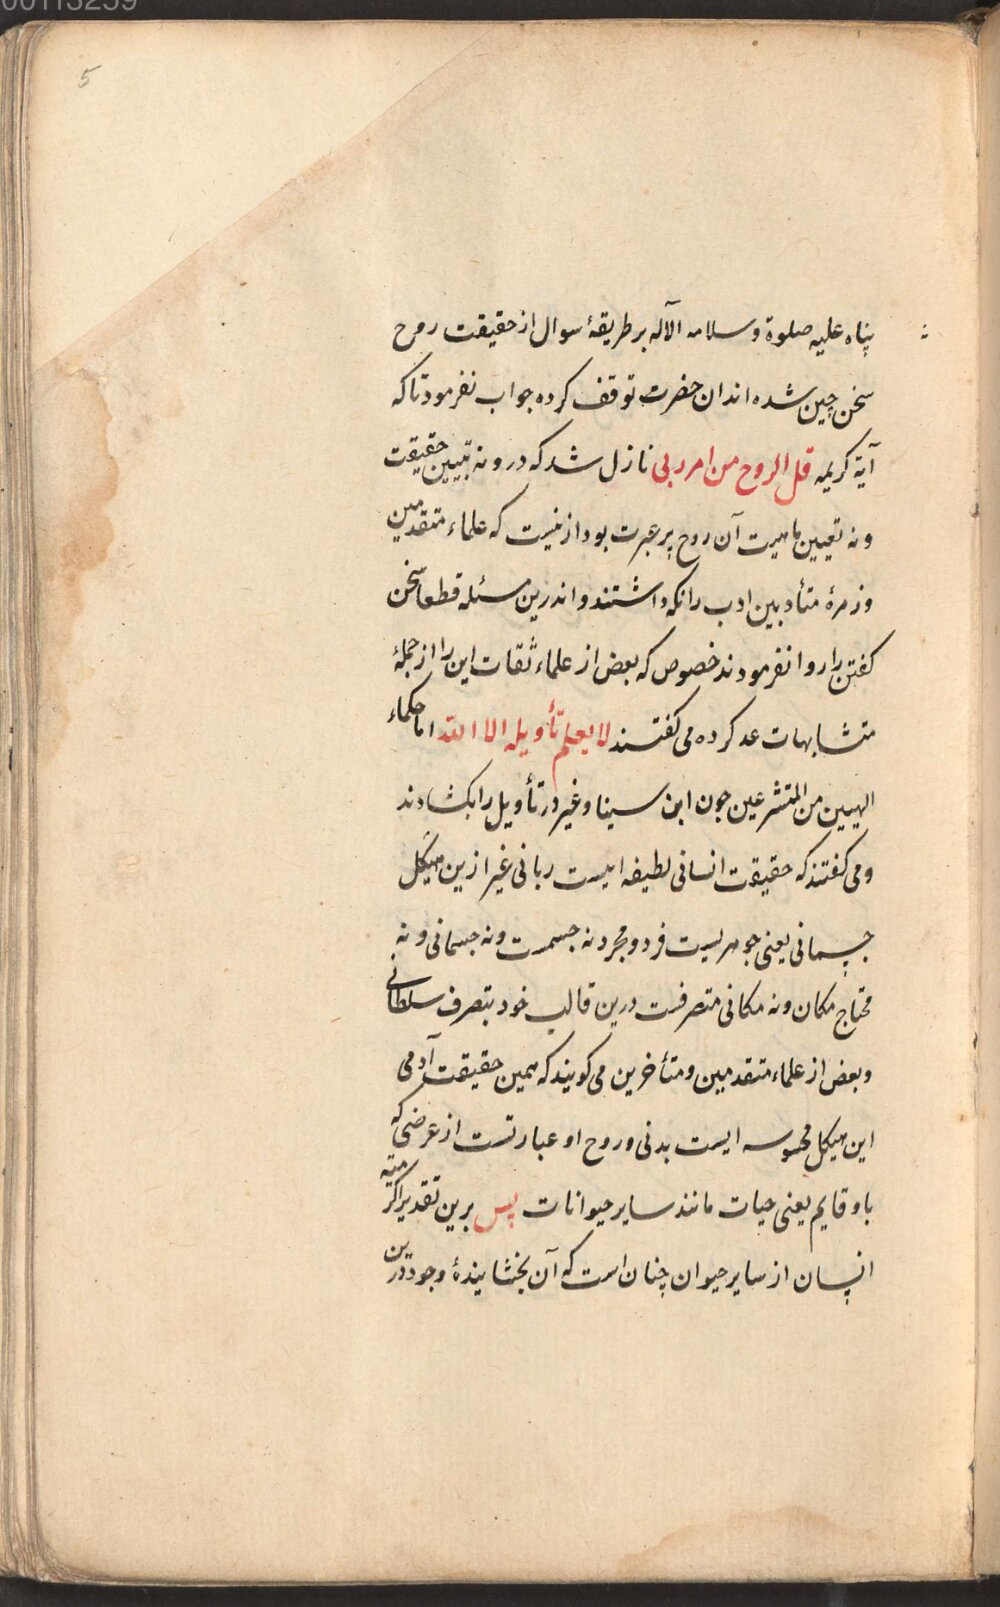 00113259
5
پناه علیه صلوة و سلامه الآله بر طریقهٔ سوال از حقیقت روح
سخن چین شده اند ان حضرت توقف کرده جواب نفرمود تا که
آیة کریمه قل الروح من امر ربی نازل شد که درو نه تبیین حقیقت
و نه تعیین ماهیت آن روح پر عبرت بود ازنیست که علماء متقدمین
و زمرهٔ متأدبین ادب را نکه داشتند و اندرین مسئله قطعا سخن
کفتن را روا نفرمودند خصوص که بعض از علماء ثقات این را از جملهٔ
متشابهات عد کرده می کفتند لا یعلم تأویله الا الله اما حکماء
الهیین من المتشرعین جون ابن سینا و غیر در تأویل را بکشادند
و می کفتند که حقیقت انسانی لطیفه ایست ربانی غیر ازین هیکل
جسمانی یعنی جوهریست فرد و مجرد نه جسمست و نه جسمانی و نه
محتاج مکان و نه مکانی متصرفست درین قالب خود بتصرف سلطانی
و بعض از علماء متقدمین و متأخرین می کویند که همین حقیقت آدمی
این هیکل محسوسه ایست بدنی و روح او عبارتست از عرضی که
باو قایم یعنی حیات مانند سایر حیوانات پس برین تقدیر اکرمیه
انسان از سایر حیوان چنان است که آن بخشایندهٔ وجود درین